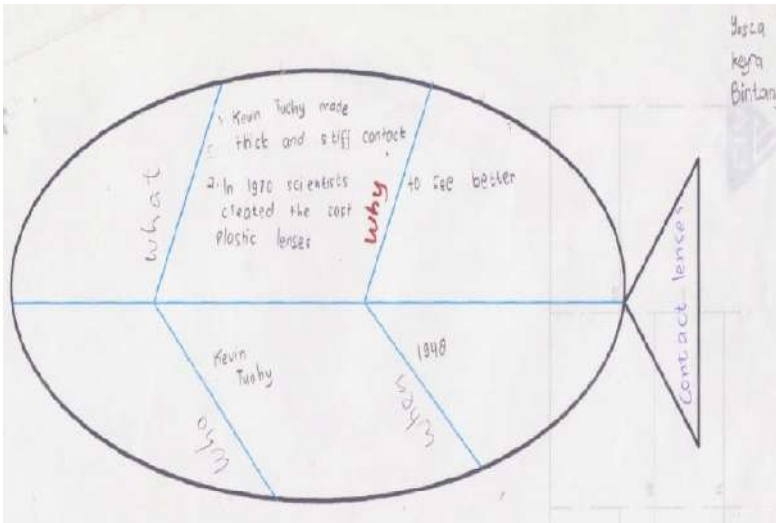 Yosza
keyra
Bintan
what
1. Kevin Tuohy made
thick and stiff contact
2. In 1970 scientists
cleated the cost
plastic lenses
why
to see better
Who
Kevin
Tuohy
when
1948
Contact lenses